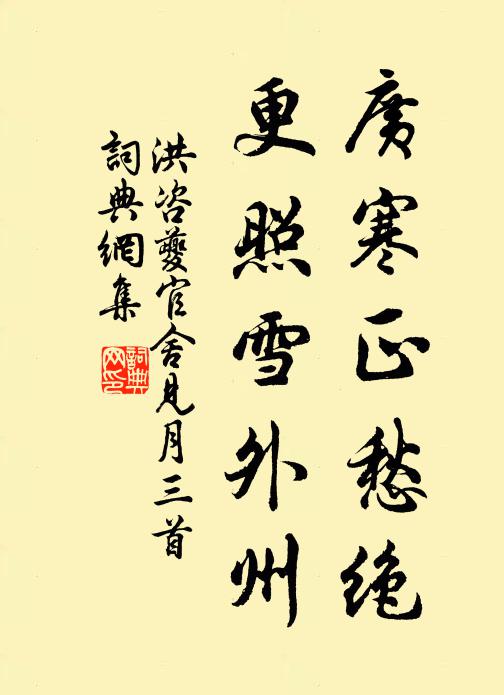 廣寒正愁絶
更照雪外州
洪咨夔官舍見月三首
詞典網集
詞典
网印